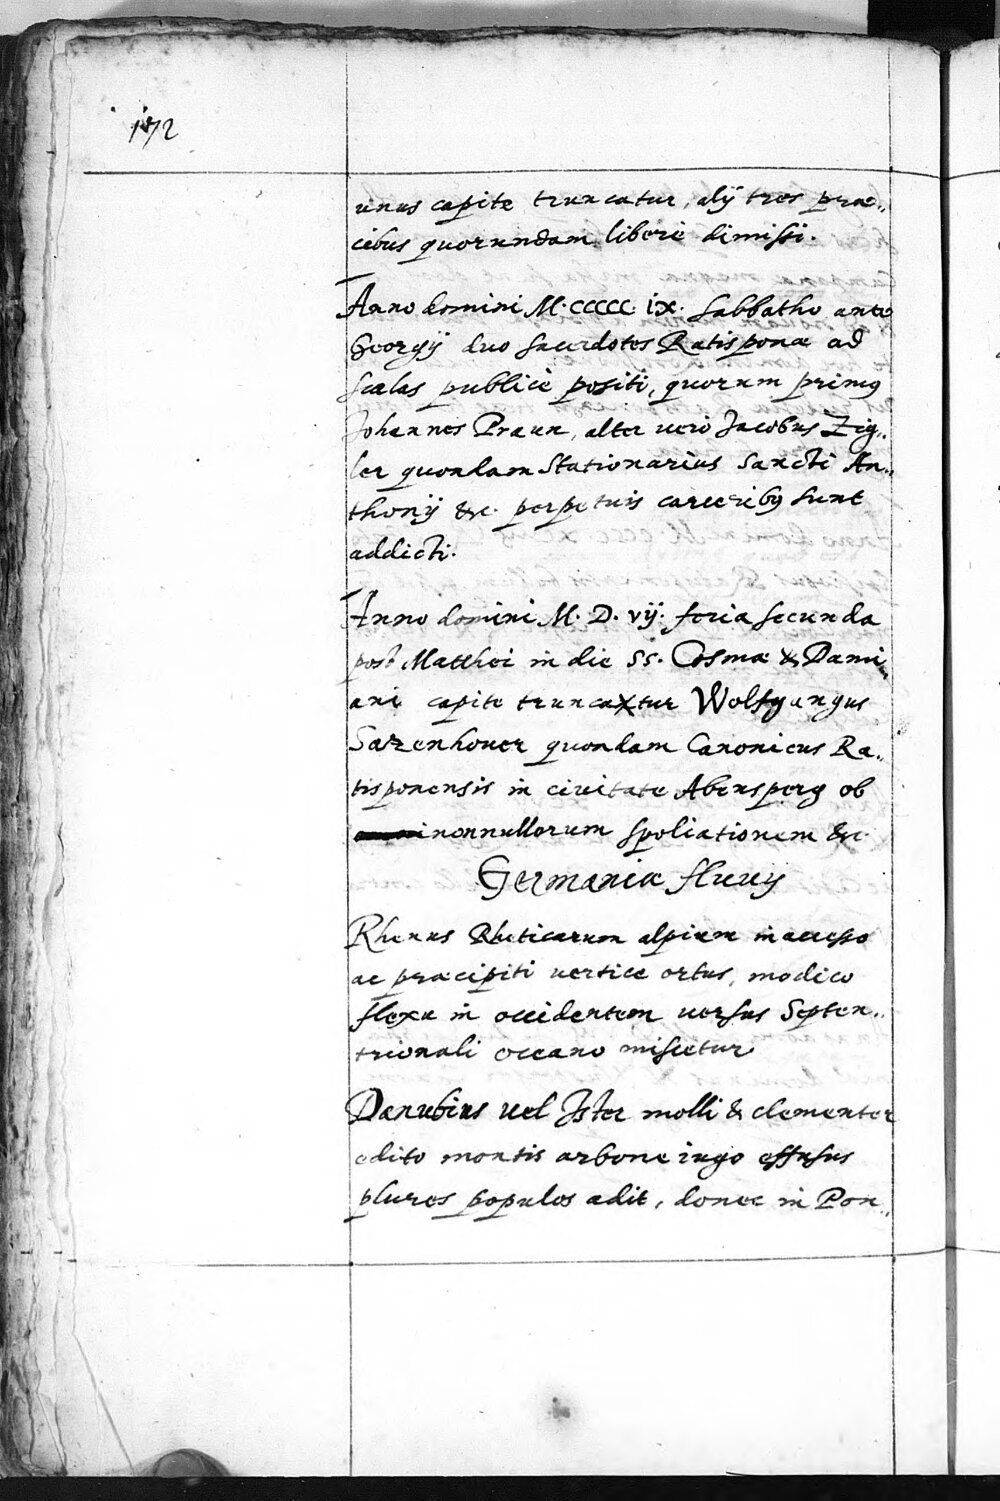 172
unus capite truncatur, alij tres præ„
cibus quorundam liberè dimissi.
Anno domini M.ccccc ix. sabbatho ante
Georgij duo sacerdotes Ratisponæ ad
scalas publicè positi, quorum primus
Johannes Praun, alter verò Jacobus Zig„
ler quondam stationarius Sancti An„
thonij &c. perpetuis carceribus sunt
addicti.
Anno domini M. D. vij. feria secunda
post Matthei in die SS. Cosmæ & Dami„
ani capite truncatur Wolfgangus
Sarzenhover quondam Canonicus Ra„
tisponensis in civitate Abensperg ob
nonnullorum spoliationem &c.
Germaniæ fluvij
Rhenus Rheticarum alpium inaccesso
ac præcipiti vertice ortus, modico
flexu in occidentem versus Septen„
trionali oceano miscetur
Danubius vel Ister molli & clementer
edito montis arbone iugo effusus
plures populos adit, donec in Pon„